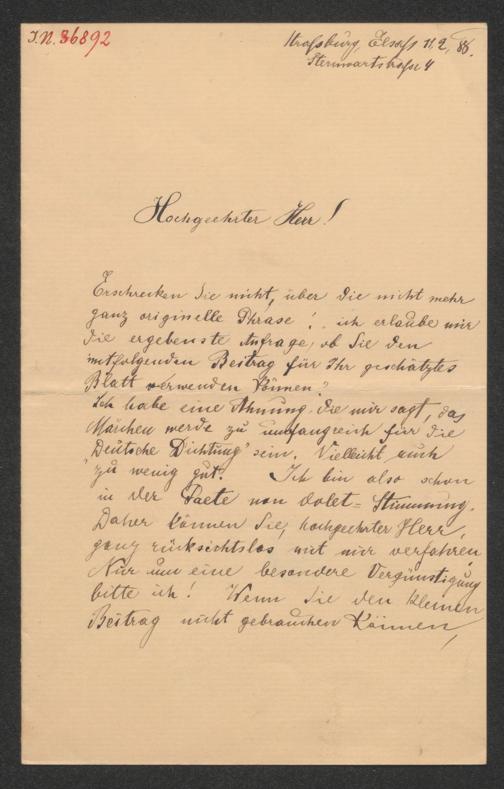 I.N. 36892
Straßburg, Elsaß 11.2, 88.
Sternwartstraße 4
Hochgeehrter Herr!
Erschrecken Sie nicht, über die nicht mehr
ganz originelle Phrase! ich erlaube mir
die ergebenste Anfrage, ob Sie den
mitfolgenden Beitrag für Ihr geschätztes
Blatt verwenden können?
Ich habe eine Ahnung die mir sagt, das
Märchen werde zu umfangreich für die
Deutsche Dichtung" sein. Vielleicht auch
zu wenig gut. Ich bin also schon
in der Paete non dolet= Stimmung.
Daher können Sie, hochgeehrter Herr,
ganz rücksichtslos mit mir verfahren
Nur um eine besondere Vergünstigung
bitte ich! Wenn Sie den kleinen
Beitrag nicht gebrauchen können,